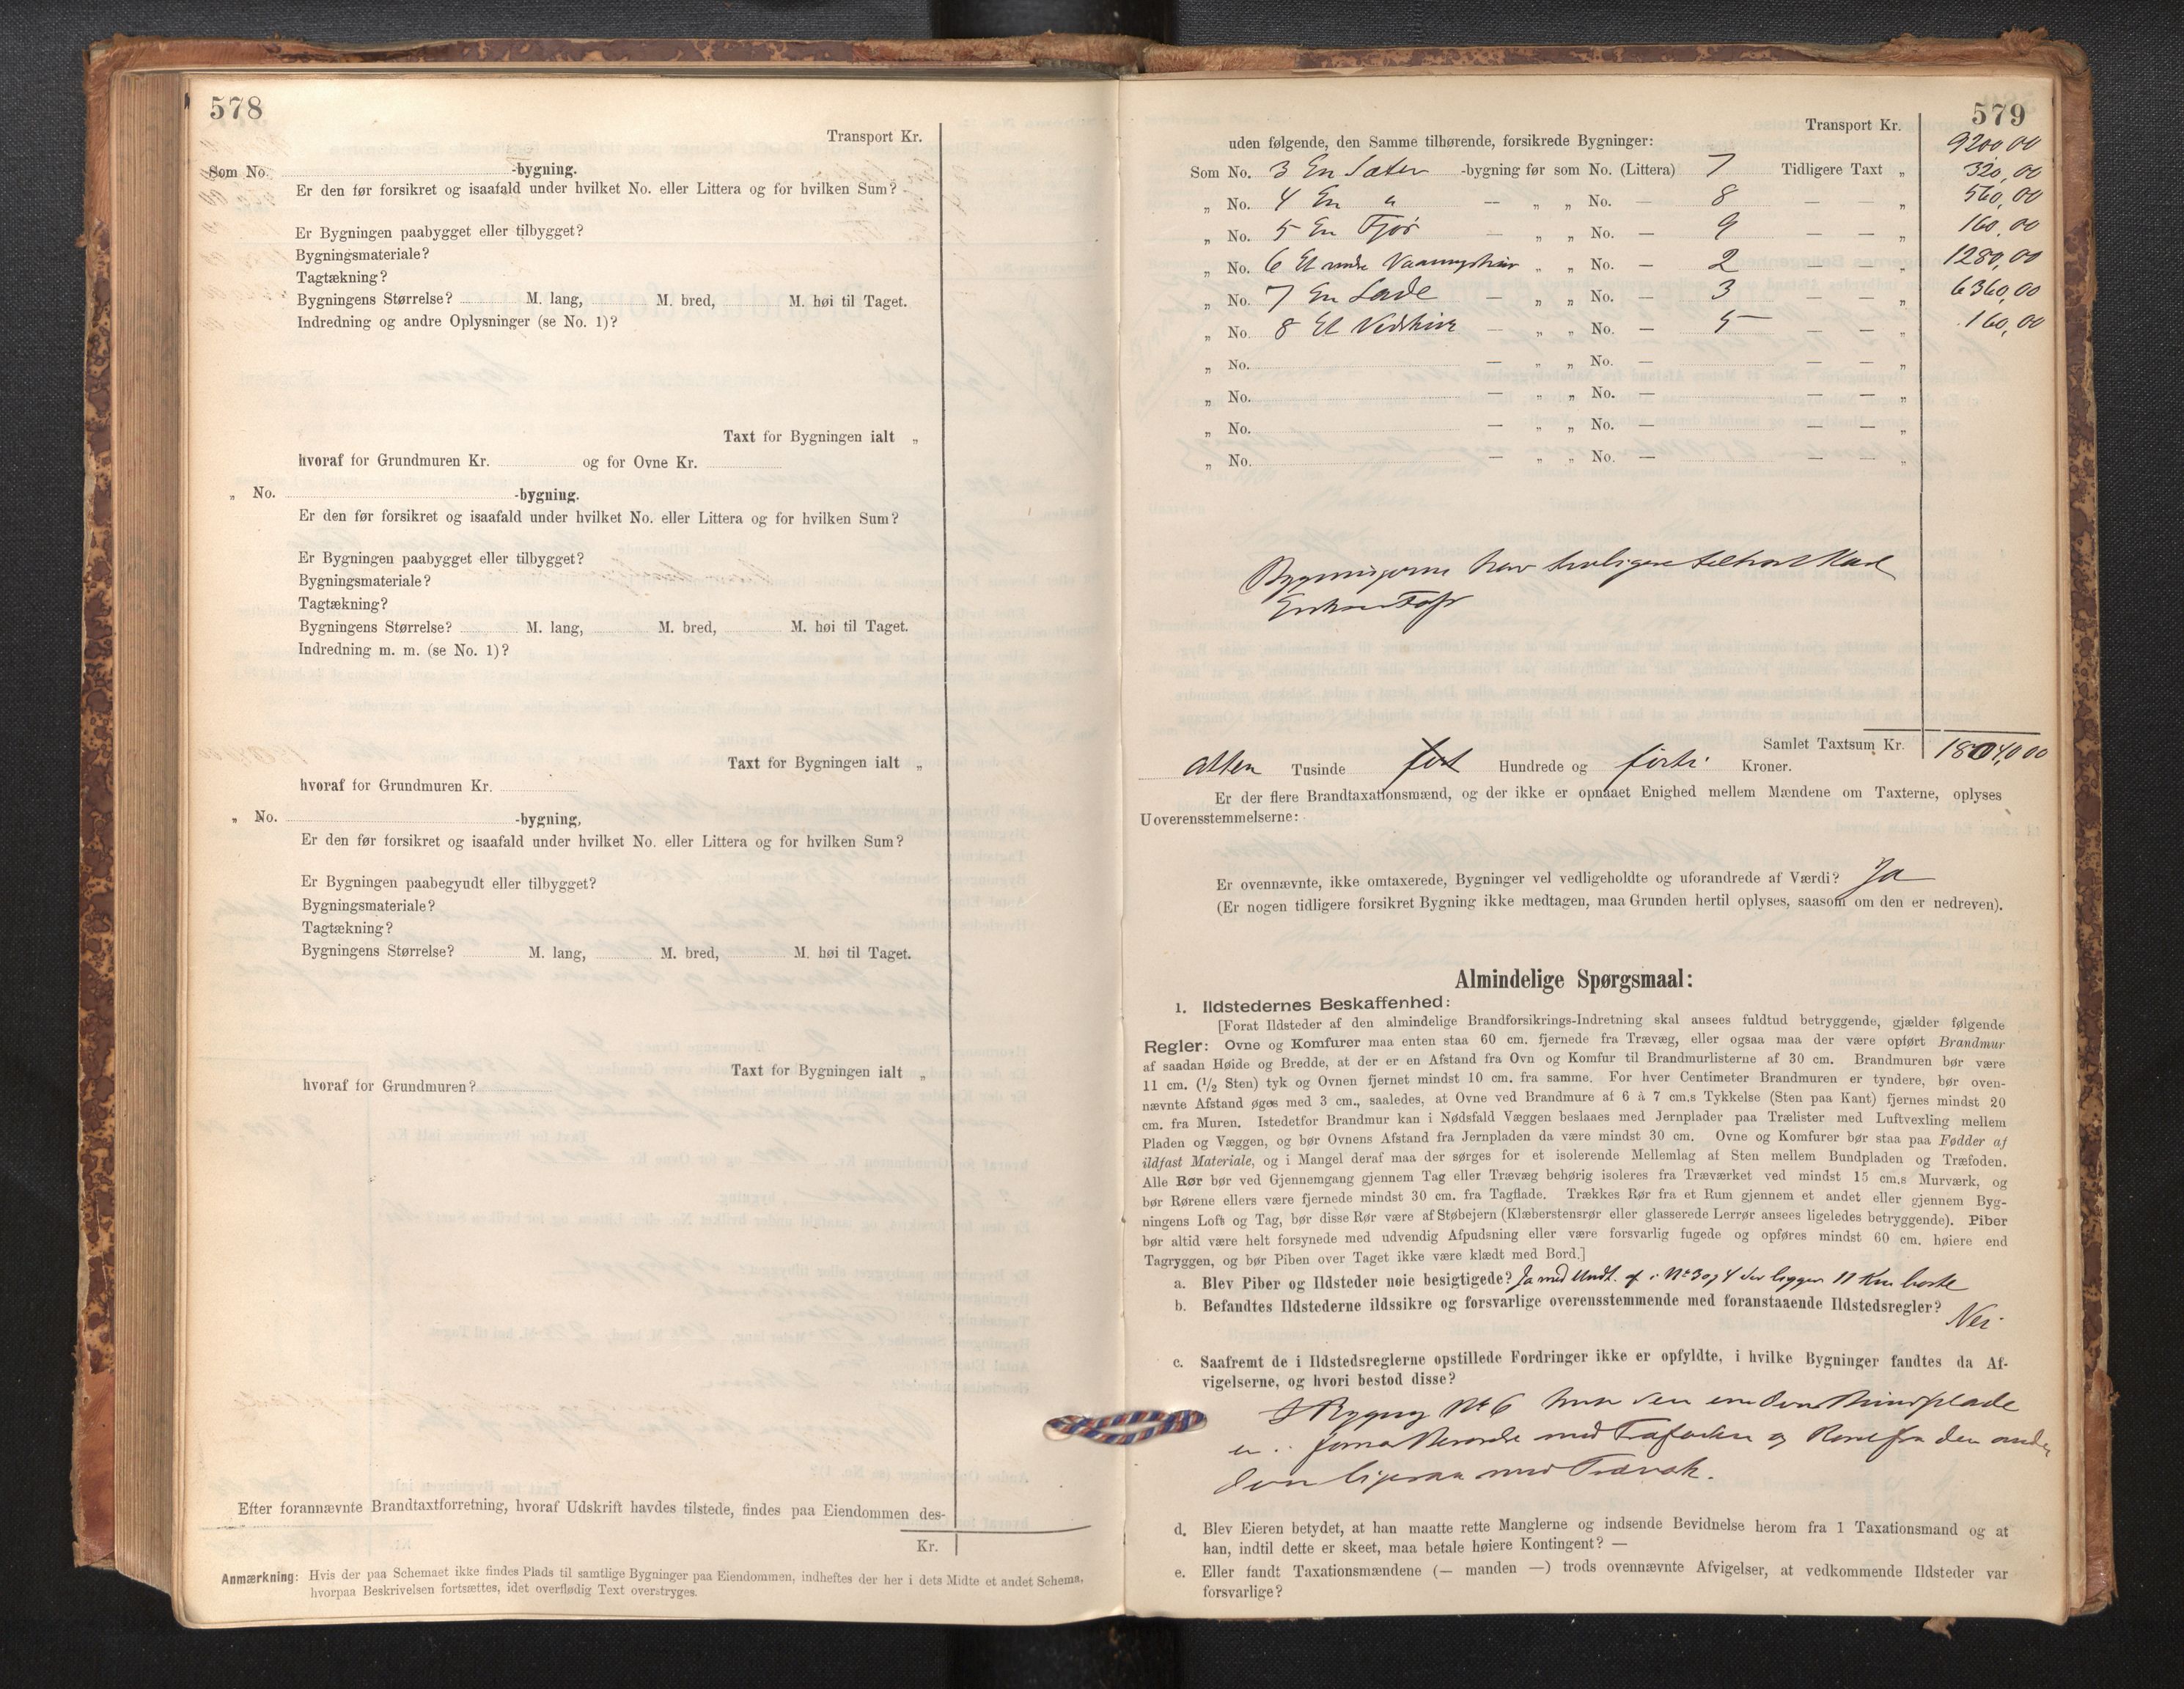 578
Transport Kr.
Som No. -bygning.
Er den før forsikret og isaafald under hvilket No. eller Littera og for hvilken Sum?
Er Bygningen paabygget eller tilbygget?
Bygningsmateriale?
Tagtækning?
Bygningens Størrelse? M. lang, M. bred, M. høi til Taget.
Indredning og andre Oplysninger (se No. 1)?
Taxt for Bygningen ialt „
hvoraf for Grundmuren Kr. og for Ovne Kr.
„ No. -bygning.
Er den før forsikret og isaafald under hvilket No. eller Littera og for hvilken Sum?
Er Bygningen paabygget eller tilbygget?
Bygningsmateriale?
Tagtækning?
Bygningens Størrelse? M. lang, M. bred, M. høi til Taget.
Indredning m. m. (se No. 1)?
Taxt for Bygningen ialt „
hvoraf for Grundmuren Kr.
„ No. -bygning,
Er den før forsikret og isaafald under hvilket No. eller Littera og for hvilken Sum?
Er Bygningen paabegyndt eller tilbygget?
Bygningsmateriale?
Tagtækning?
Bygningens Størrelse? M. lang, M. bred, M. høi til Taget.
Taxt for Bygningen ialt „
hvoraf for Grundmuren?
Efter forannævnte Brandtaxtforretning, hvoraf Udskrift havdes tilstede, findes paa Eiendommen des-
Kr.
Anmærkning: Hvis der paa Schemaet ikke findes Plads til samtlige Bygninger paa Eiendommen, indheftes der her i dets Midte et andet Schema,
hvorpaa Beskrivelsen fortsættes, idet overflødig Text overstryges.
579
Transport Kr. 9200,00
uden følgende, den Samme tilhørende, forsikrede Bygninger:
Som No. 3 En Sæter -bygning før som No. (Littera) 7 Tidligere Taxt „ 320,00
„ No. 4 En " — „ „ No. — 8 — — „ 560,00
„ No. 5 En Fjøs — „ „ No. — 9 — — „ 160,00
„ No. 6 Et Vaaningshus „ „ No. — 2 — — „ 1280,00
„ No. 7 En Lade — „ „ No. — 3 — — „ 6360,00
„ No. 8 Et Vedskur — „ „ No. — 5 — — „ 160,00
„ No. — „ „ No. — — — „
„ No. — „ „ No. — — — „
„ No. — „ „ No. — — — „
„ No. — „ „ No. — — — „
Bygningerne har tidligere tilhørt
Samlet Taxtsum Kr. 18040,00
atten Tusinde Hundrede og førti Kroner.
Er der flere Brandtaxationsmænd, og der ikke er opnaaet Enighed mellem Mændene om Taxterne, oplyses
Uoverensstemmelserne:
Er ovennævnte, ikke omtaxerede, Bygninger vel vedligeholdte og uforandrede af Værdi? Ja
(Er nogen tidligere forsikret Bygning ikke medtagen, maa Grunden hertil oplyses, saasom om den er nedreven).
Almindelige Spørgsmaal:
1. Ildstedernes Beskaffenhed:
[Forat Ildsteder af den almindelige Brandforsikrings-Indretning skal ansees fuldtud betryggende, gjælder følgende
Regler: Ovne og Komfurer maa enten staa 60 cm. fjernede fra Trævæg, eller ogsaa maa der være opført Brandmur
af saadan Høide og Bredde, at der er en Afstand fra Ovn og Komfur til Brandmurlisterne af 30 cm. Brandmuren bør være
11 cm. (1/2 Sten) tyk og Ovnen fjernet mindst 10 cm. fra samme. For hver Centimeter Brandmuren er tyndere, bør oven-
nævnte Afstand øges med 3 cm., saaledes, at Ovne ved Brandmure af 6 à 7 cm.s Tykkelse (Sten paa Kant) fjernes mindst 20
cm. fra Muren. Istedetfor Brandmur kan i Nødsfald Væggen beslaaes med Jernplader paa Trælister med Luftvexling mellem
Pladen og Væggen, og bør Ovnens Afstand fra Jernpladen da være mindst 30 cm. Ovne og Komfurer bør staa paa Fødder af
ildfast Materiale, og i Mangel deraf maa der sørges for et isolerende Mellemlag af Sten mellem Bundpladen og Træfoden.
Alle Rør bør ved Gjennemgang gjennem Tag eller Trævæg behørig isoleres fra Træværket ved mindst 15 cm.s Murværk, og
bør Rørene ellers være fjernede mindst 30 cm. fra Tagflade. Trækkes Rør fra et Rum gjennem et andet eller gjennem Byg-
ningens Loft og Tag, bør disse Rør være af Støbejern (Klæberstensrør eller glasserede Lerrør ansees ligeledes betryggende). Piber
bør altid være helt forsynede med udvendig Afpudsning eller være forsvarlig fugede og opføres mindst 60 cm. høiere end
Tagryggen, og bør Piben over Taget ikke være klædt med Bord.]
a. Blev Piber og Ildsteder nøie besigtigede? Ja med Undt. af i No 3 og 4 der ligger 11 Km borte
b. Befandtes Ildstederne ildssikre og forsvarlige overensstemmende med foranstaaende Ildstedsregler? Nei
c. Saafremt de i Ildstedsreglerne opstillede Fordringer ikke er opfyldte, i hvilke Bygninger fandtes da Af-
vigelserne, og hvori bestod disse?
I Bygning No 6 den ene
er med Træfoden og Røret fra den anden
Ovn ligesaa med Træværk.
d. Blev Eieren betydet, at han maatte rette Manglerne og indsende Bevidnelse herom fra 1 Taxationsmand og at
han, indtil dette er skeet, maa betale høiere Kontingent? —
e. Eller fandt Taxationsmændene (— manden —) trods ovennævnte Afvigelser, at vedkommende Ildsteder var
forsvarlige?